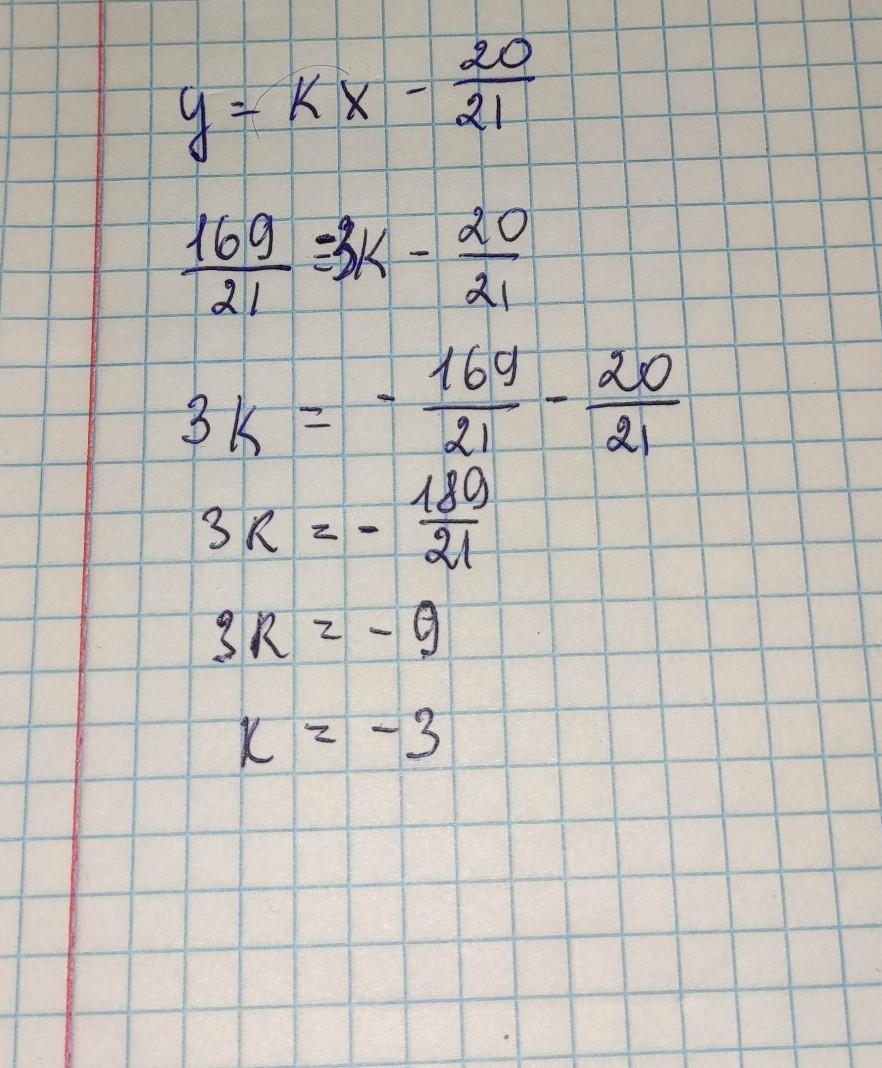 y = KX - 20/21
169/21 = -3K - 20/21
3K = - 169/21 - 20/21
3K = - 189/21
3K = - 9
K = - 3